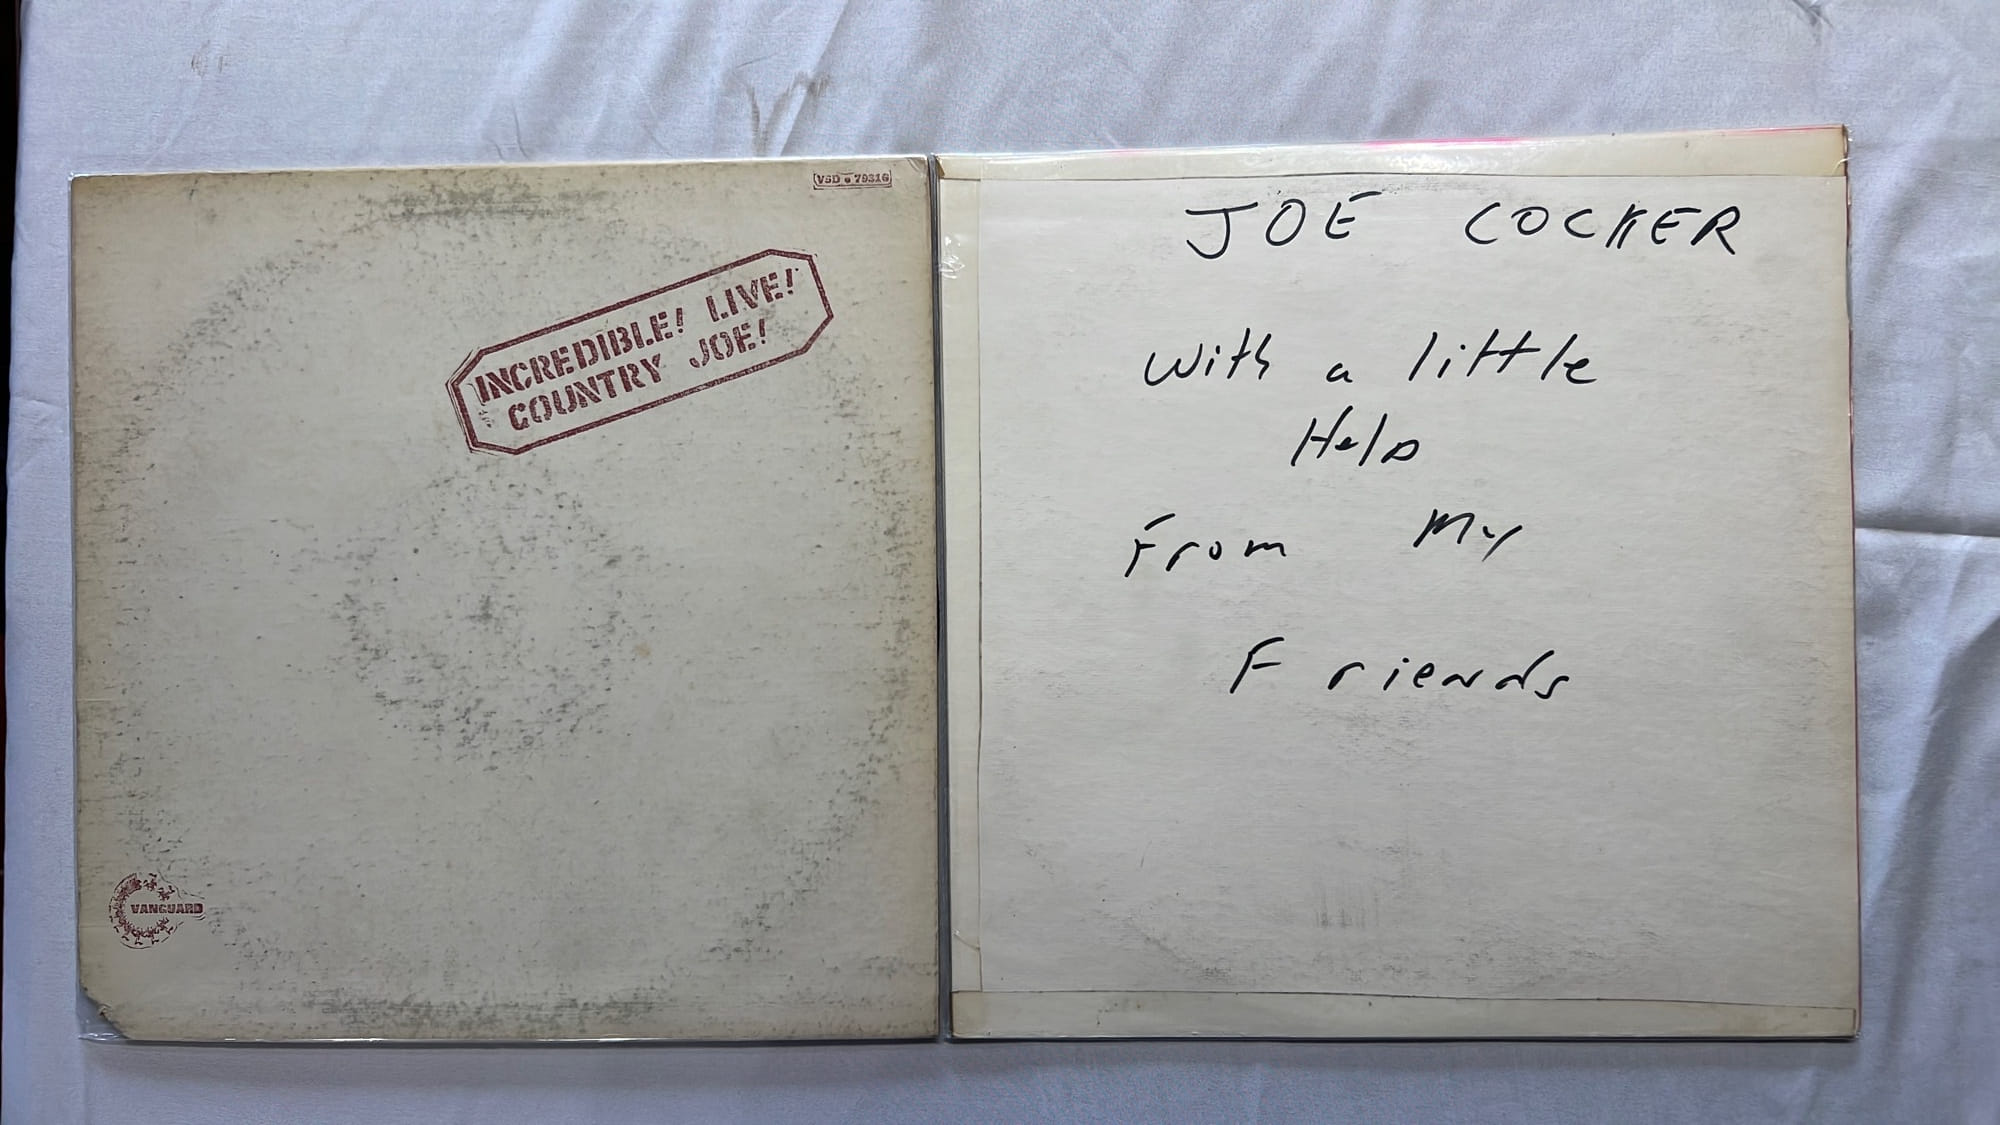 VSD • 79316
INCREDIBLE! LIVE!
COUNTRY JOE!
VANGUARD
JOE COCKER
with a little
Help
From My
Friends